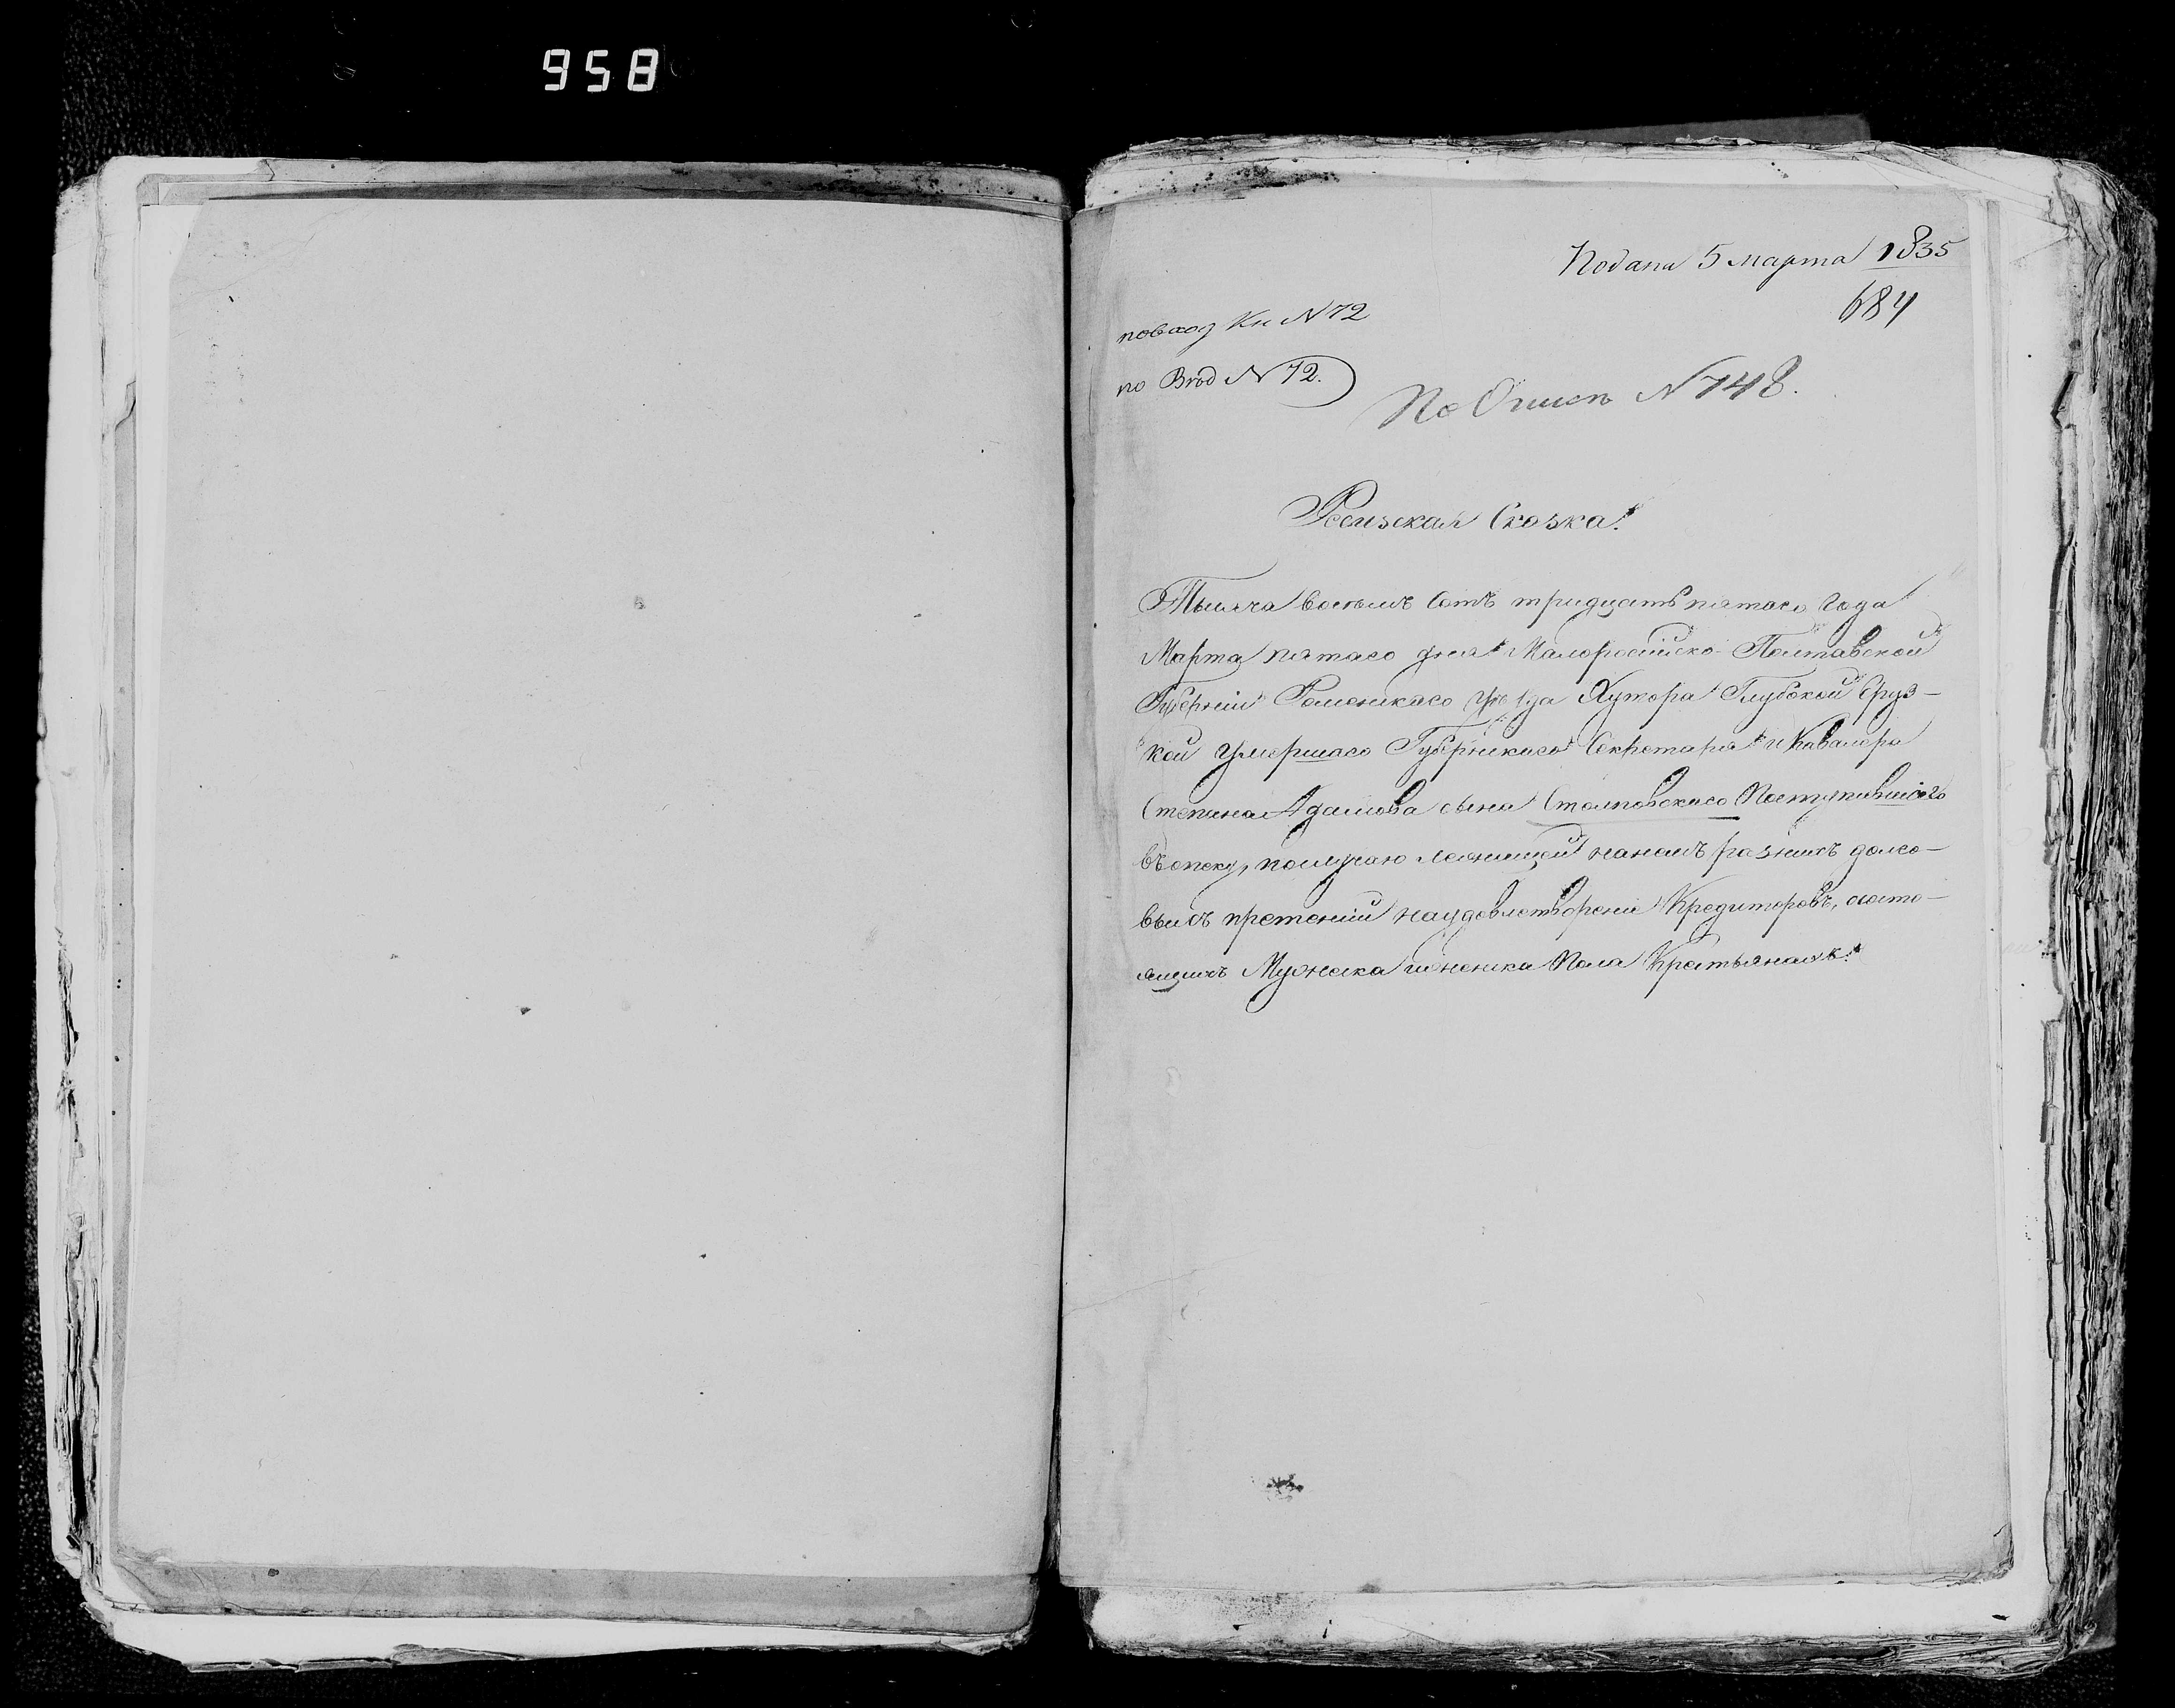 958
Подана 5 марта 1835
684
по вход Кн N 72
по Вход N 72.
По Описи N 748.
Ревизская Сказка.
Тысяча восемь сотъ тридцать пятаго года
Марта пятаго дня Малоросийско Полтавской
Губерніи Роменскаго уѣзда Хутора Глубокой
кой умершаго Губернскаго Секретаря и Кавалера
Степана Адамова сына Столповскаго Поступившаго
въ опеку, по нанемъ разнихъ долго-
выхъ претеній на удовлетвореніе Кредиторовъ, состо-
ящихъ Мужеска и женска Пола Крестьянахъ.